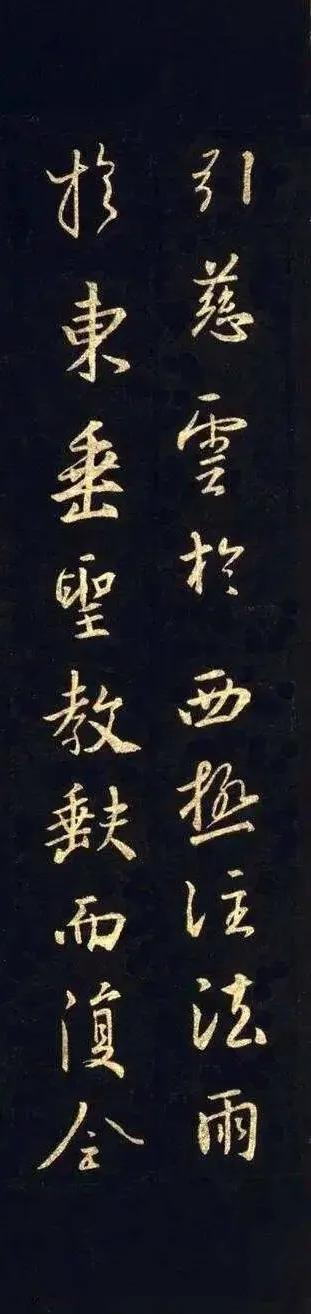 引慈雲於西極注法雨
於東垂聖教缺而復全